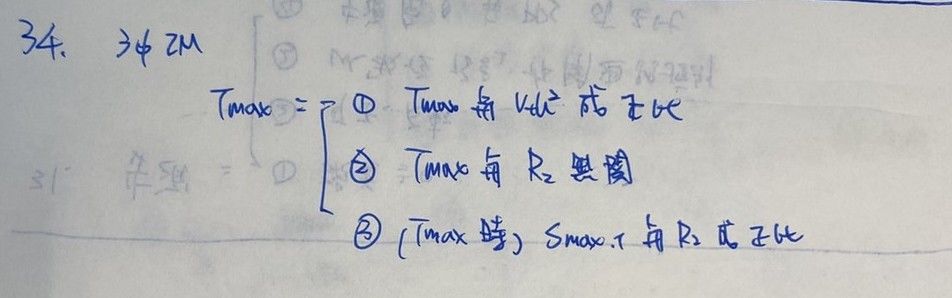 34. 3ϕ IM
Tmax = ① Tmax 與 Vth² 成正比
② Tmax 與 R₂ 無關
③ (Tmax 時) Smax.T 與 R₂ 成正比